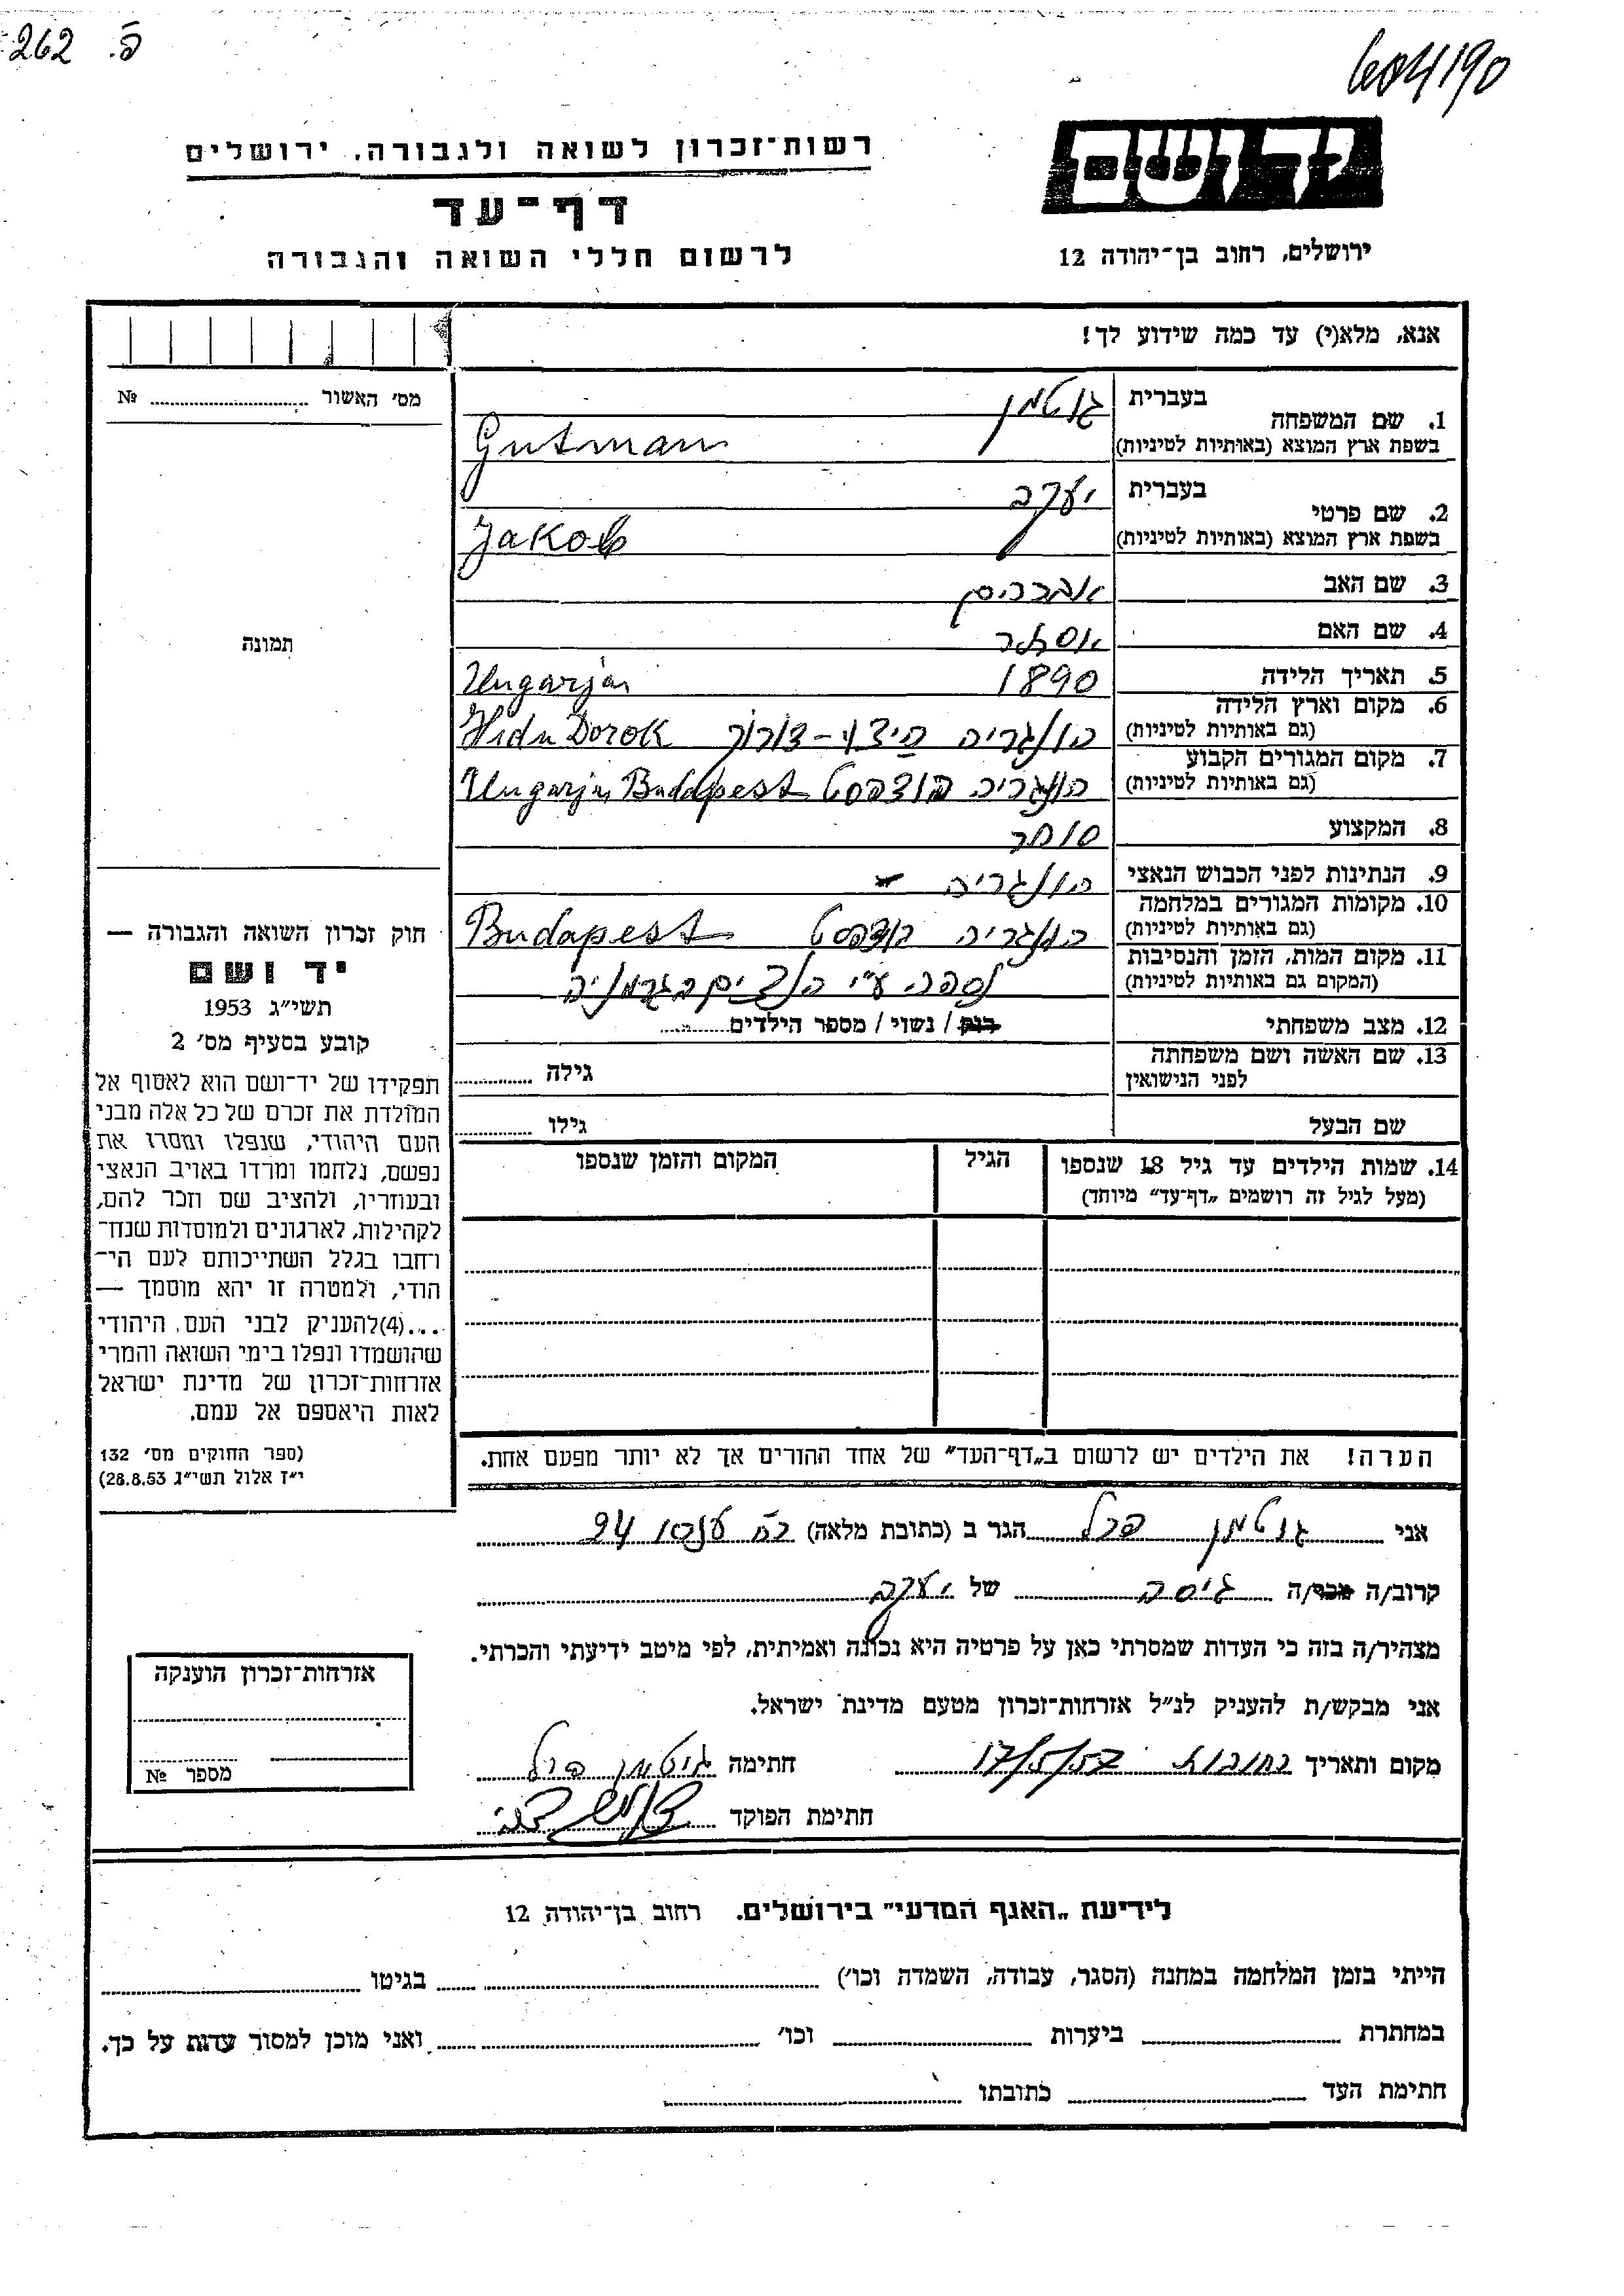 262 פ.
604190
יד ושם
רשות־זכרון לשואה ולגבורה, ירושלים
דף־עד
לרשום חללי השואה והגבורה
ירושלים, רחוב בן־יהודה 12
אנא, מלא(י) עד כמה שידוע לך!
מס׳ האשור № 
1. שם המשפחה בעברית גוטמן
בשפת ארץ המוצא (באותיות לטיניות) Gutman
2. שם פרטי בעברית יעקב
בשפת ארץ המוצא (באותיות לטיניות) Jakob
3. שם האב אברהם
4. שם האם אסתר
תמונה
5. תאריך הלידה 1890 Ungarján
6. מקום וארץ הלידה
(גם באותיות לטיניות) הונגריה היצו-דורוך Hidu Dorok
7. מקום המגורים הקבוע
(גם באותיות לטיניות) הונגריה בודפסט Ungarján Budapest
8. המקצוע סוחר
9. הנתינות לפני הכבוש הנאצי הונגריה
10. מקומות המגורים במלחמה
(גם באותיות לטיניות) הונגריה בודפסט Budapest
11. מקום המות, הזמן והנסיבות
(המקום גם באותיות לטיניות) נספה ע״י הנצים בגרמניה
12. מצב משפחתי רווק / נשוי / מספר הילדים
13. שם האשה ושם משפחתה
לפני הנישואין גילה
שם הבעל גילו
14. שמות הילדים עד גיל 18 שנספו הגיל המקום והזמן שנספו
(מעל לגיל זה רושמים „דף־עד” מיוחד)
חוק זכרון השואה והגבורה —
יד ושם
תשי״ג 1953
קובע בסעיף מס׳ 2
תפקידו של יד־ושם הוא לאסוף אל
המולדת את זכרם של כל אלה מבני
העם היהודי, שנפלו ומסרו את
נפשם, נלחמו ומרדו באויב הנאצי
ובעוזריו, ולהציב שם וזכר להם,
לקהילות, לארגונים ולמוסדות שנח־
רחבו בגלל השתייכותם לעם הי־
הודי, ולמטרה זו יהא מוסמך —
...(4)להעניק לבני העם היהודי
שהושמדו ונפלו בימי השואה והמרי
אזרחות־זכרון של מדינת ישראל
לאות היאספם אל עמם.
(ספר החוקים מס׳ 132
י״ז אלול תשי״ג 28.8.53)
הערה! את הילדים יש לרשום ב„דף־העד” של אחד ההורים אך לא יותר מפעם אחת.
אני גוטמן פרל הגר ב (כתובת מלאה) 24
קרוב/ה מכר/ה גיסה של יעקב
מצהיר/ה בזה כי העדות שמסרתי כאן על פרטיה היא נכונה ואמיתית, לפי מיטב ידיעתי והכרתי.
אני מבקש/ת להעניק לנ״ל אזרחות־זכרון מטעם מדינת ישראל.
מקום ותאריך רחובות 17/5/57 חתימה גוטמן פרל
חתימת הפוקד
אזרחות־זכרון הוענקה
מספר №
לידיעת „האגף המדעי” בירושלים, רחוב בן־יהודה 12
הייתי בזמן המלחמה במחנה (הסגר, עבודה, השמדה וכו׳) בגיטו
במחתרת ביערות וכו׳ ואני מוכן למסור עדות על כך.
חתימת העד כתובתו